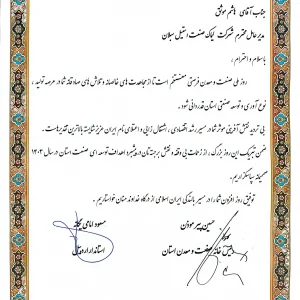 جناب آقای هاشم موثق
مدیرعامل محترم شرکت نیک صنعت استیل سبلان
با سلام و احترام
روز ملی صنعت و معدن فرصتی مغتنم است تا از مجاهدت های خالصانه و تلاش های صادقانه شما در عرصه تولید،
نوع آوری و توسعه صنعتی استان قدردانی شود.
بی تردید نقش آفرینی موثر شما در مسیر رشد اقتصادی، اشتغال زایی و اعتلای نام ایران عزیز شایسته بالاترین تقدیرهاست.
ضمن تبریک این روز بزرگ، از زحمات بی وقفه و نقش برجسته تان در پیشبرد اهداف توسعه ای صنعت استان در سال ۱۴۰۳
صمیمانه سپاسگزاریم.
توفیق روز افزون شما را در مسیر بالندگی ایران اسلامی از درگاه خداوند منان خواستاریم.
حسین پیرموذن
رئیس خانه صنعت و معدن استان
مسعود امامی یگانه
استاندار اردبیل